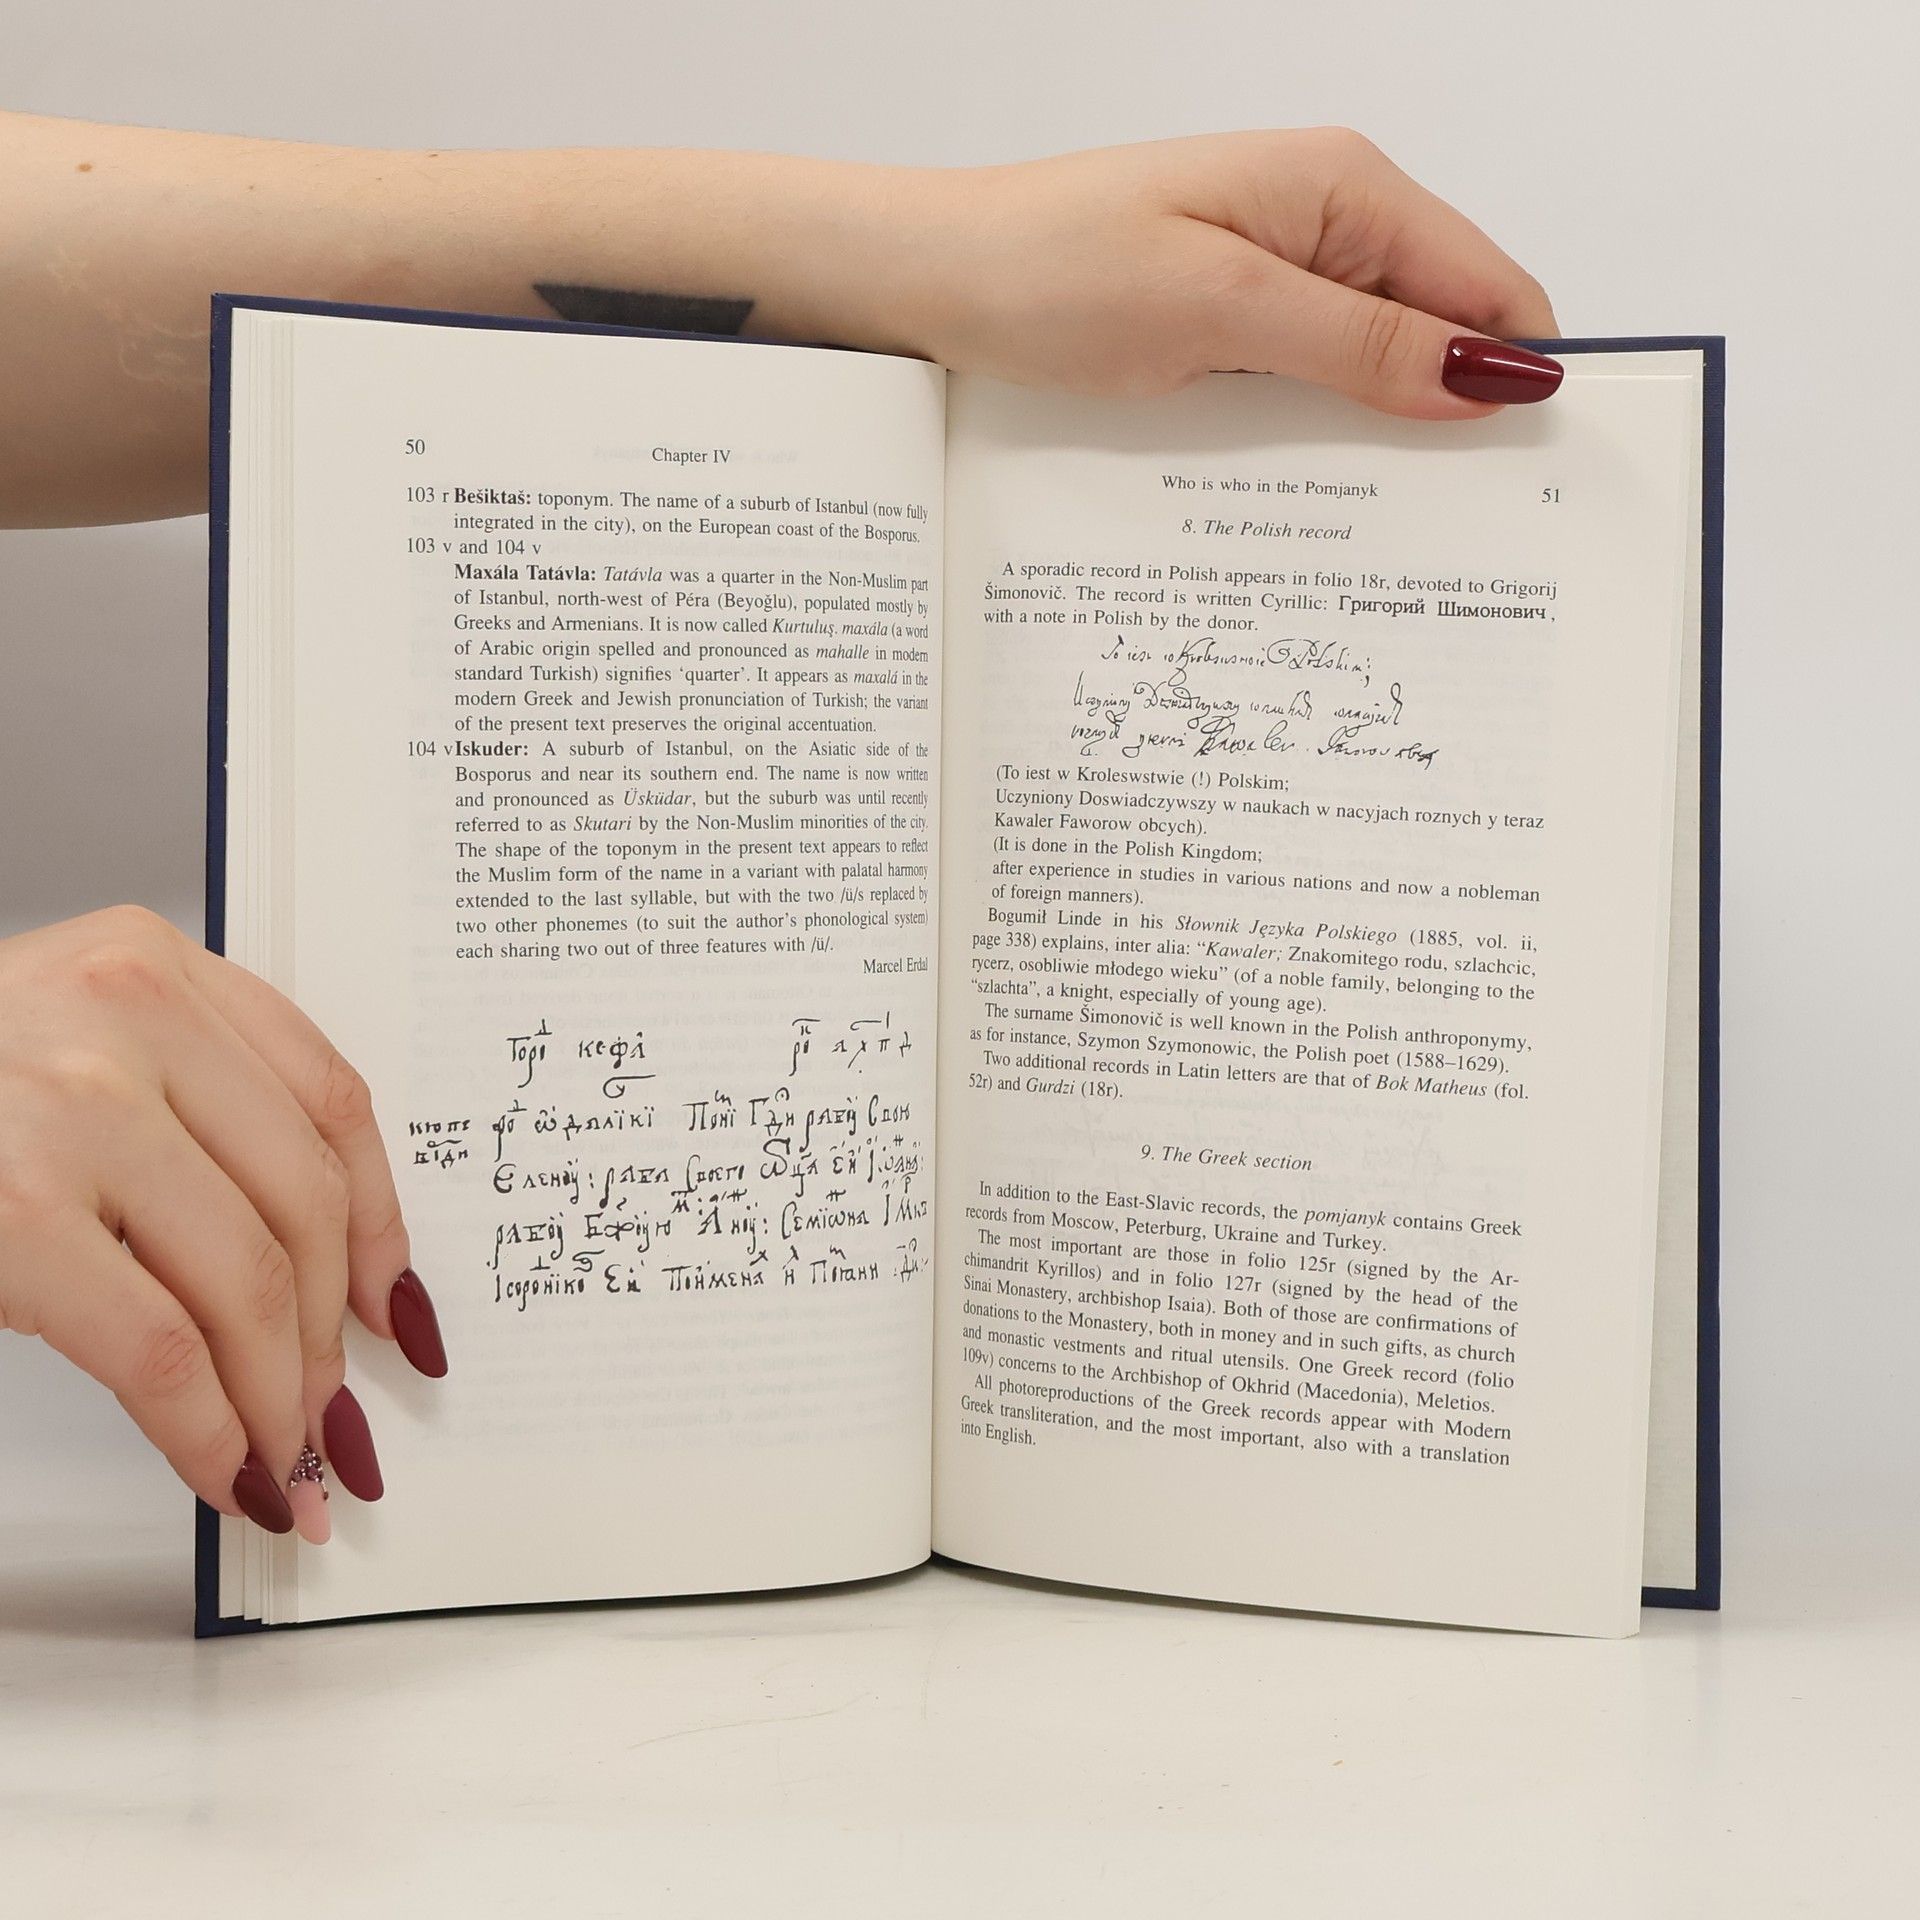 50
Chapter IV
103 r Bešiktaš: toponym. The name of a suburb of Istanbul (now fully
integrated in the city), on the European coast of the Bosporus.
103 v and 104 v
Maxála Tatávla: Tatávla was a quarter in the Non-Muslim part
of Istanbul, north-west of Péra (Beyoğlu), populated mostly by
Greeks and Armenians. It is now called Kurtuluş. maxála (a word
of Arabic origin spelled and pronounced as mahalle in modern
standard Turkish) signifies ‘quarter’. It appears as maxalá in the
modern Greek and Jewish pronunciation of Turkish; the variant
of the present text preserves the original accentuation.
104 v Iskuder: A suburb of Istanbul, on the Asiatic side of the
Bosporus and near its southern end. The name is now written
and pronounced as Üsküdar, but the suburb was until recently
referred to as Skutari by the Non-Muslim minorities of the city.
The shape of the toponym in the present text appears to reflect
the Muslim form of the name in a variant with palatal harmony
extended to the last syllable, but with the two /ü/s replaced by
two other phonemes (to suit the author’s phonological system)
each sharing two out of three features with /ü/.
Marcel Erdal
Who is who in the Pomjanyk
51
8. The Polish record
A sporadic record in Polish appears in folio 18r, devoted to Grigorij
Šimonovič. The record is written Cyrillic: Григорий Шимонович,
with a note in Polish by the donor.
(To iest w Kroleswstwie (!) Polskim;
Uczyniony Doswiadczywszy w naukach w nacyjach roznych y teraz
Kawaler Faworow obcych).
(It is done in the Polish Kingdom;
after experience in studies in various nations and now a nobleman
of foreign manners).
Bogumił Linde in his Słownik Języka Polskiego (1885, vol. ii,
page 338) explains, inter alia: “Kawaler; Znakomitego rodu, szlachcic,
rycerz, osobliwie młodego wieku” (of a noble family, belonging to the
“szlachta”, a knight, especially of young age).
The surname Šimonovič is well known in the Polish anthroponymy,
as for instance, Szymon Szymonowic, the Polish poet (1588–1629).
Two additional records in Latin letters are that of Bok Matheus (fol.
52r) and Gurdzi (18r).
9. The Greek section
In addition to the East-Slavic records, the pomjanyk contains Greek
records from Moscow, Peterburg, Ukraine and Turkey.
The most important are those in folio 125r (signed by the Ar-
chimandrit Kyrillos) and in folio 127r (signed by the head of the
Sinai Monastery, archbishop Isaia). Both of those are confirmations of
donations to the Monastery, both in money and in such gifts, as church
and monastic vestments and ritual utensils. One Greek record (folio
109v) concerns to the Archbishop of Okhrid (Macedonia), Meletios.
All photoreproductions of the Greek records appear with Modern
Greek transliteration, and the most important, also with a translation
into English.